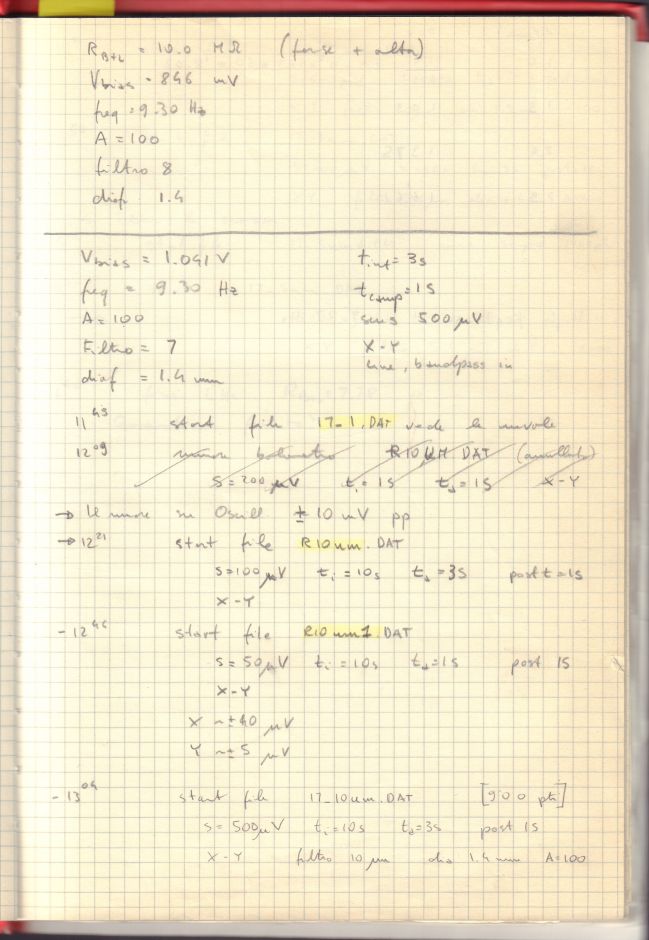 R_B+L = 10.0 MΩ (forse + alta)
Vbias = 846 mV
freq = 9.30 Hz
A = 100
filtro 8
diaf. 1.4
Vbias = 1.041 V t_int = 3s
freq = 9.30 Hz t_camp = 1s
A = 100 sens 500 μV
Filtro = 7 X-Y
diaf = 1.4 mm Line, bandpass in
11 45 start file 17-1.DAT vede le nuvole
12 09 rumore bolometro R10UM DAT (annullato)
S = 200 μV t_i = 1s t_s = 1s X-Y
→ Il rumore su Oscill. ± 10 mV pp
→ 12 21 start file R10um.DAT
S=100 μV t_i = 10s t_s = 3s post t = 1s
X-Y
- 12 46 start file R10um1.DAT
S = 50 μV t_i = 10s t_s = 1s post 1s
X-Y
X ~ ±40 μV
Y ~ ± 5 μV
- 13 04 start file 17_10um.DAT [900 pti]
S = 500 μV t_i = 10s t_s = 3s post 1s
X-Y filtro 10 μm dia 1.4 mm A=100